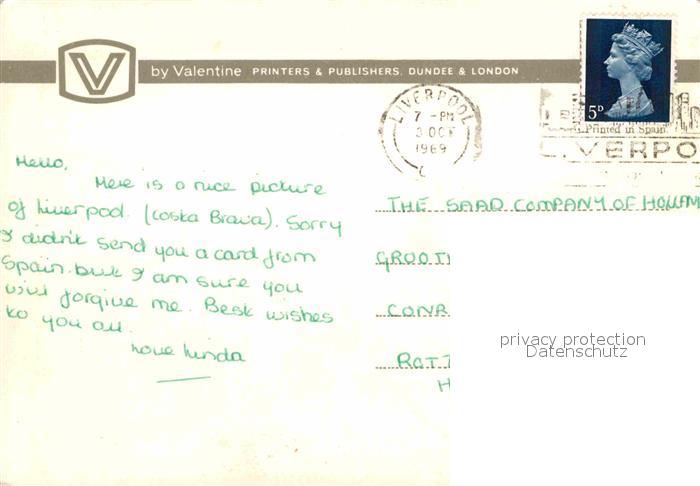 V by Valentine PRINTERS & PUBLISHERS, DUNDEE & LONDON
LIVERPOOL
7 - PM
3 OCT
1969
5D
Printed in Spain
LIVERPO
Hello,
Here is a nice picture
of Liverpool. (Costa Brava). Sorry
I didn't send you a card from
Spain. but I am sure you
will forgive me. Best wishes
to you all.
love Linda
THE SAAD COMPANY OF HOLLAN
GROOT
CONR
ROTT
H
privacy protection
Datenschutz